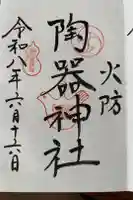 火防
陶器神社
令和八年六月十六日